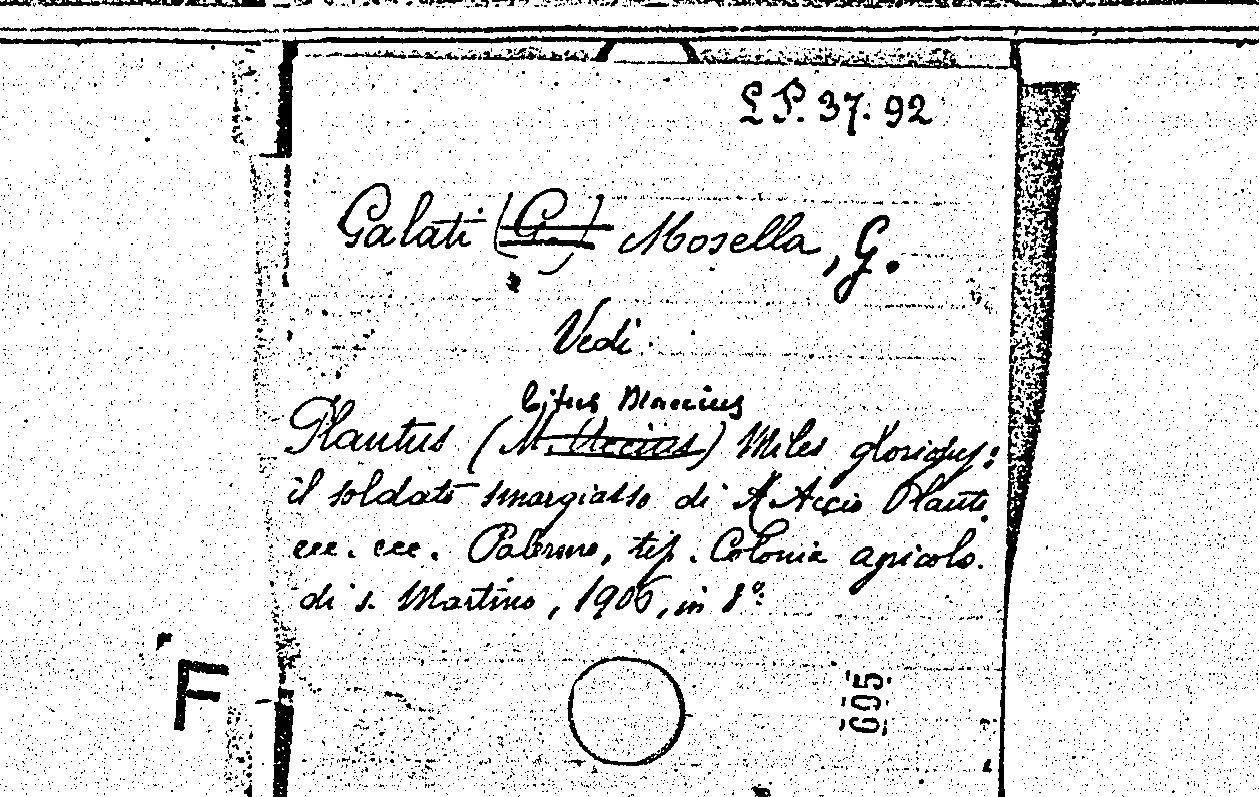 L P. 37. 92
Galati (G.) Mosella, G.
Vedi
Titus Maccius
Plautus (M. Accius) Miles gloriosus:
il soldato smargiasso di M. Accio Plauto
ecc. ecc. Palermo, tip. Colonia agricola.
di s. Martino, 1906, in 8°.
F
695